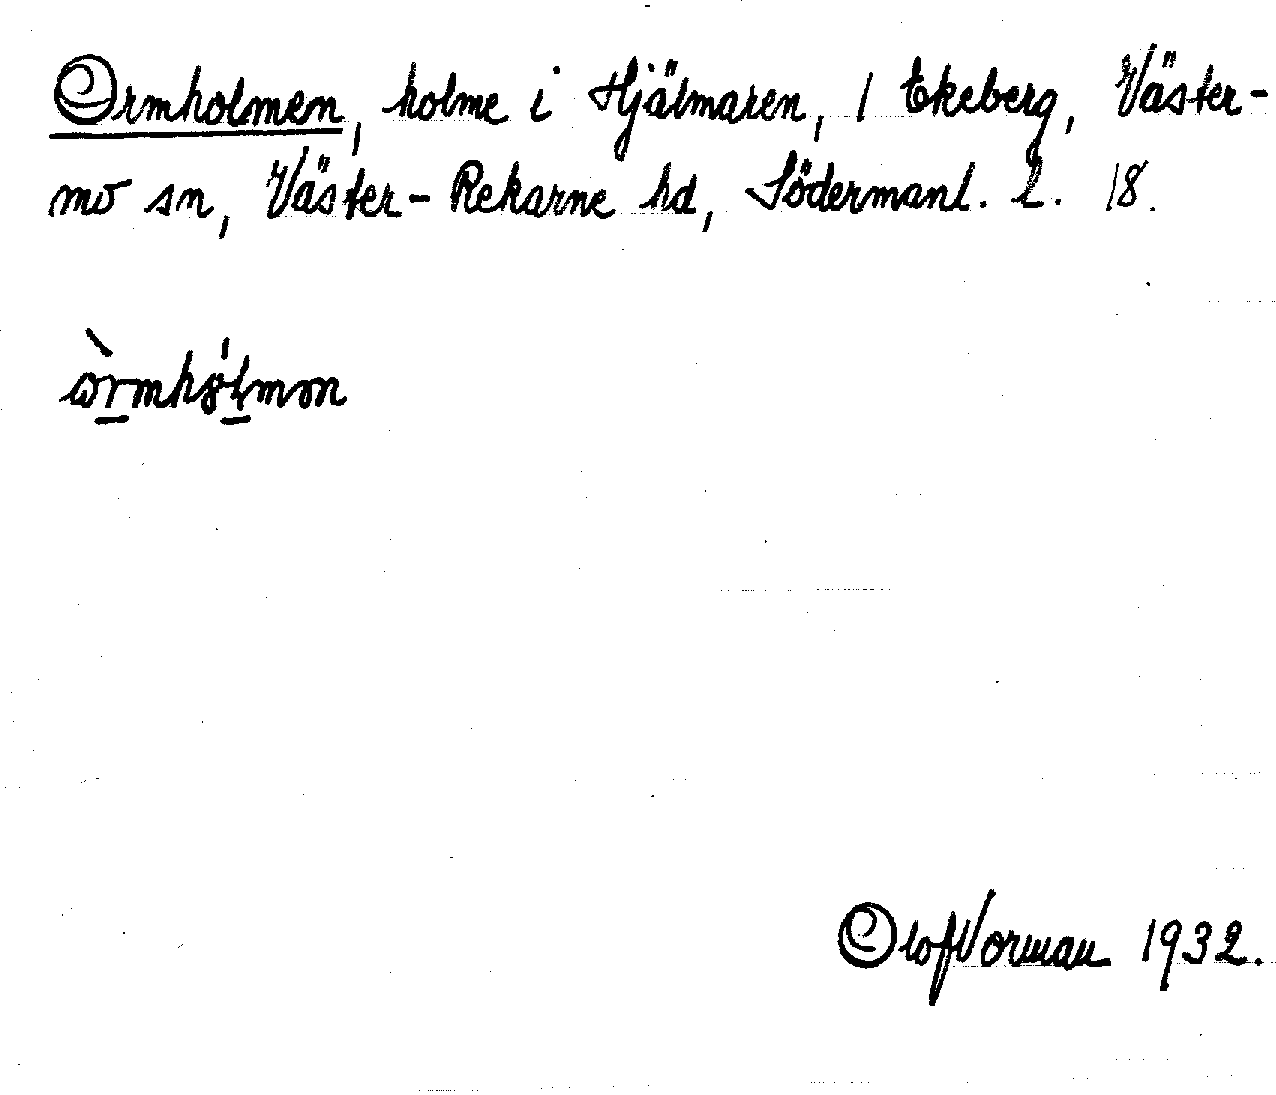 Ormholmen, holme i Hjälmaren, / Ekeberg, Väster-
mo sn, Väster-Rekarne hd, Södermanl. l. 18.
òrmhólmən
Olof Vorman 1932.